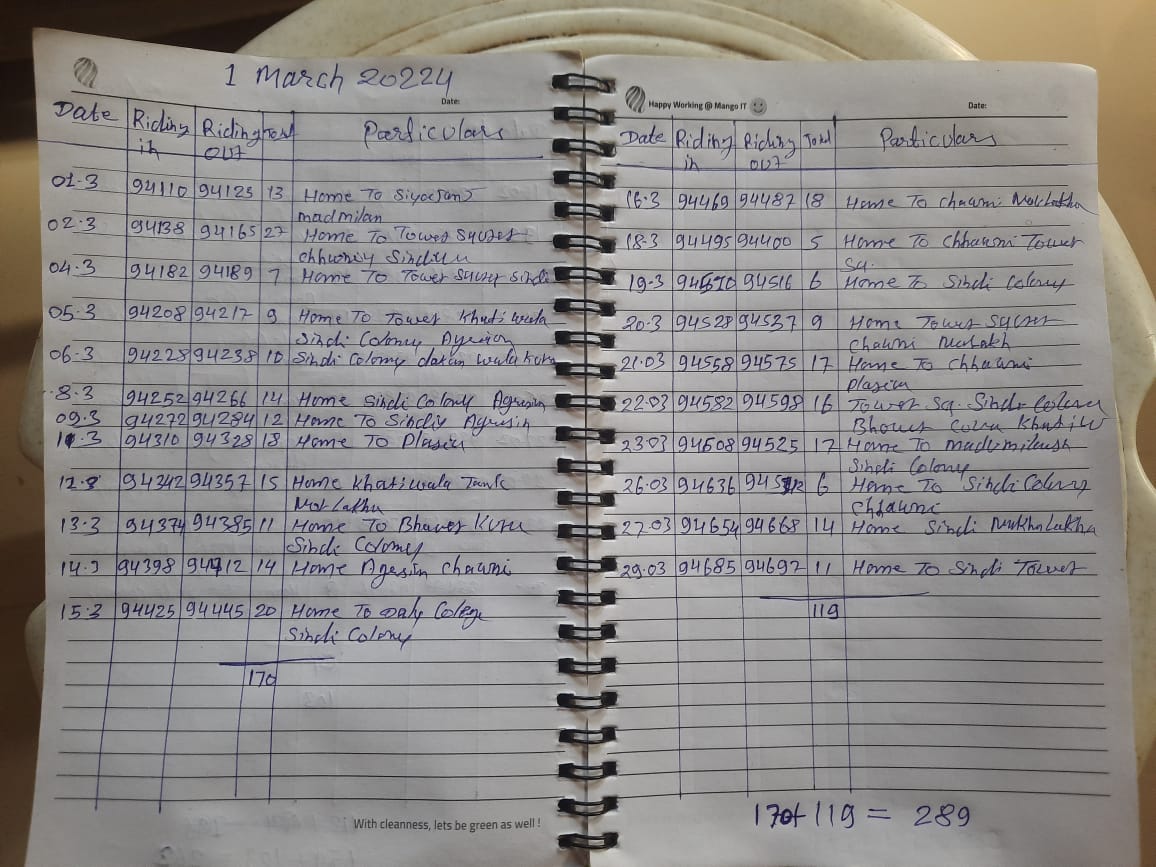 1 March 20224
Date:
Date Riding in Riding out Total Particulars
01.3 94110 94125 13 Home To
madmilan
02.3 94138 94165 27 Home To Tower
04.3 94182 94189 7 Home To Tower
05.3 94208 94217 9 Home To Tower Khatiwala
Sindi Colony
06.3 94228 94238 10 Sindi Colony
8.3 94252 94266 14 Home Sindi Colony Agresin
09.3 94272 94284 12 Home To Agresin
11.3 94310 94328 18 Home To
12.3 94342 94357 15 Home Khatiwala Tank
13.3 94374 94385 11 Home To
Sindi Colony
14.3 94398 94412 14 Home chawni
15.3 94425 94445 20 Home To Daly Colege
Sindi Colony
170
With cleanness, lets be green as well !
Happy Working @ Mango IT
Date:
Date Riding in Riding out Total Particulars
16.3 94469 94487 18 Home To chawni
18.3 94495 94400 5 Home To Chhawni Tower
Sq.
19.3 94516 6 Home To Sindi Colony
20.3 94528 94537 9 Home Tower
Chawni
21.03 94558 94575 17 Home To Chhawni
22.03 94582 94598 16 Tower Sq. Sindi Colony
23.03 94608 94525 17 Home To
Sindi Colony
26.03 94636 6 Home To Sindi Colony
Chhawni
27.03 94654 94668 14 Home Sindi
29.03 94685 94697 11 Home To Sindi Tower
119
170+119 = 289